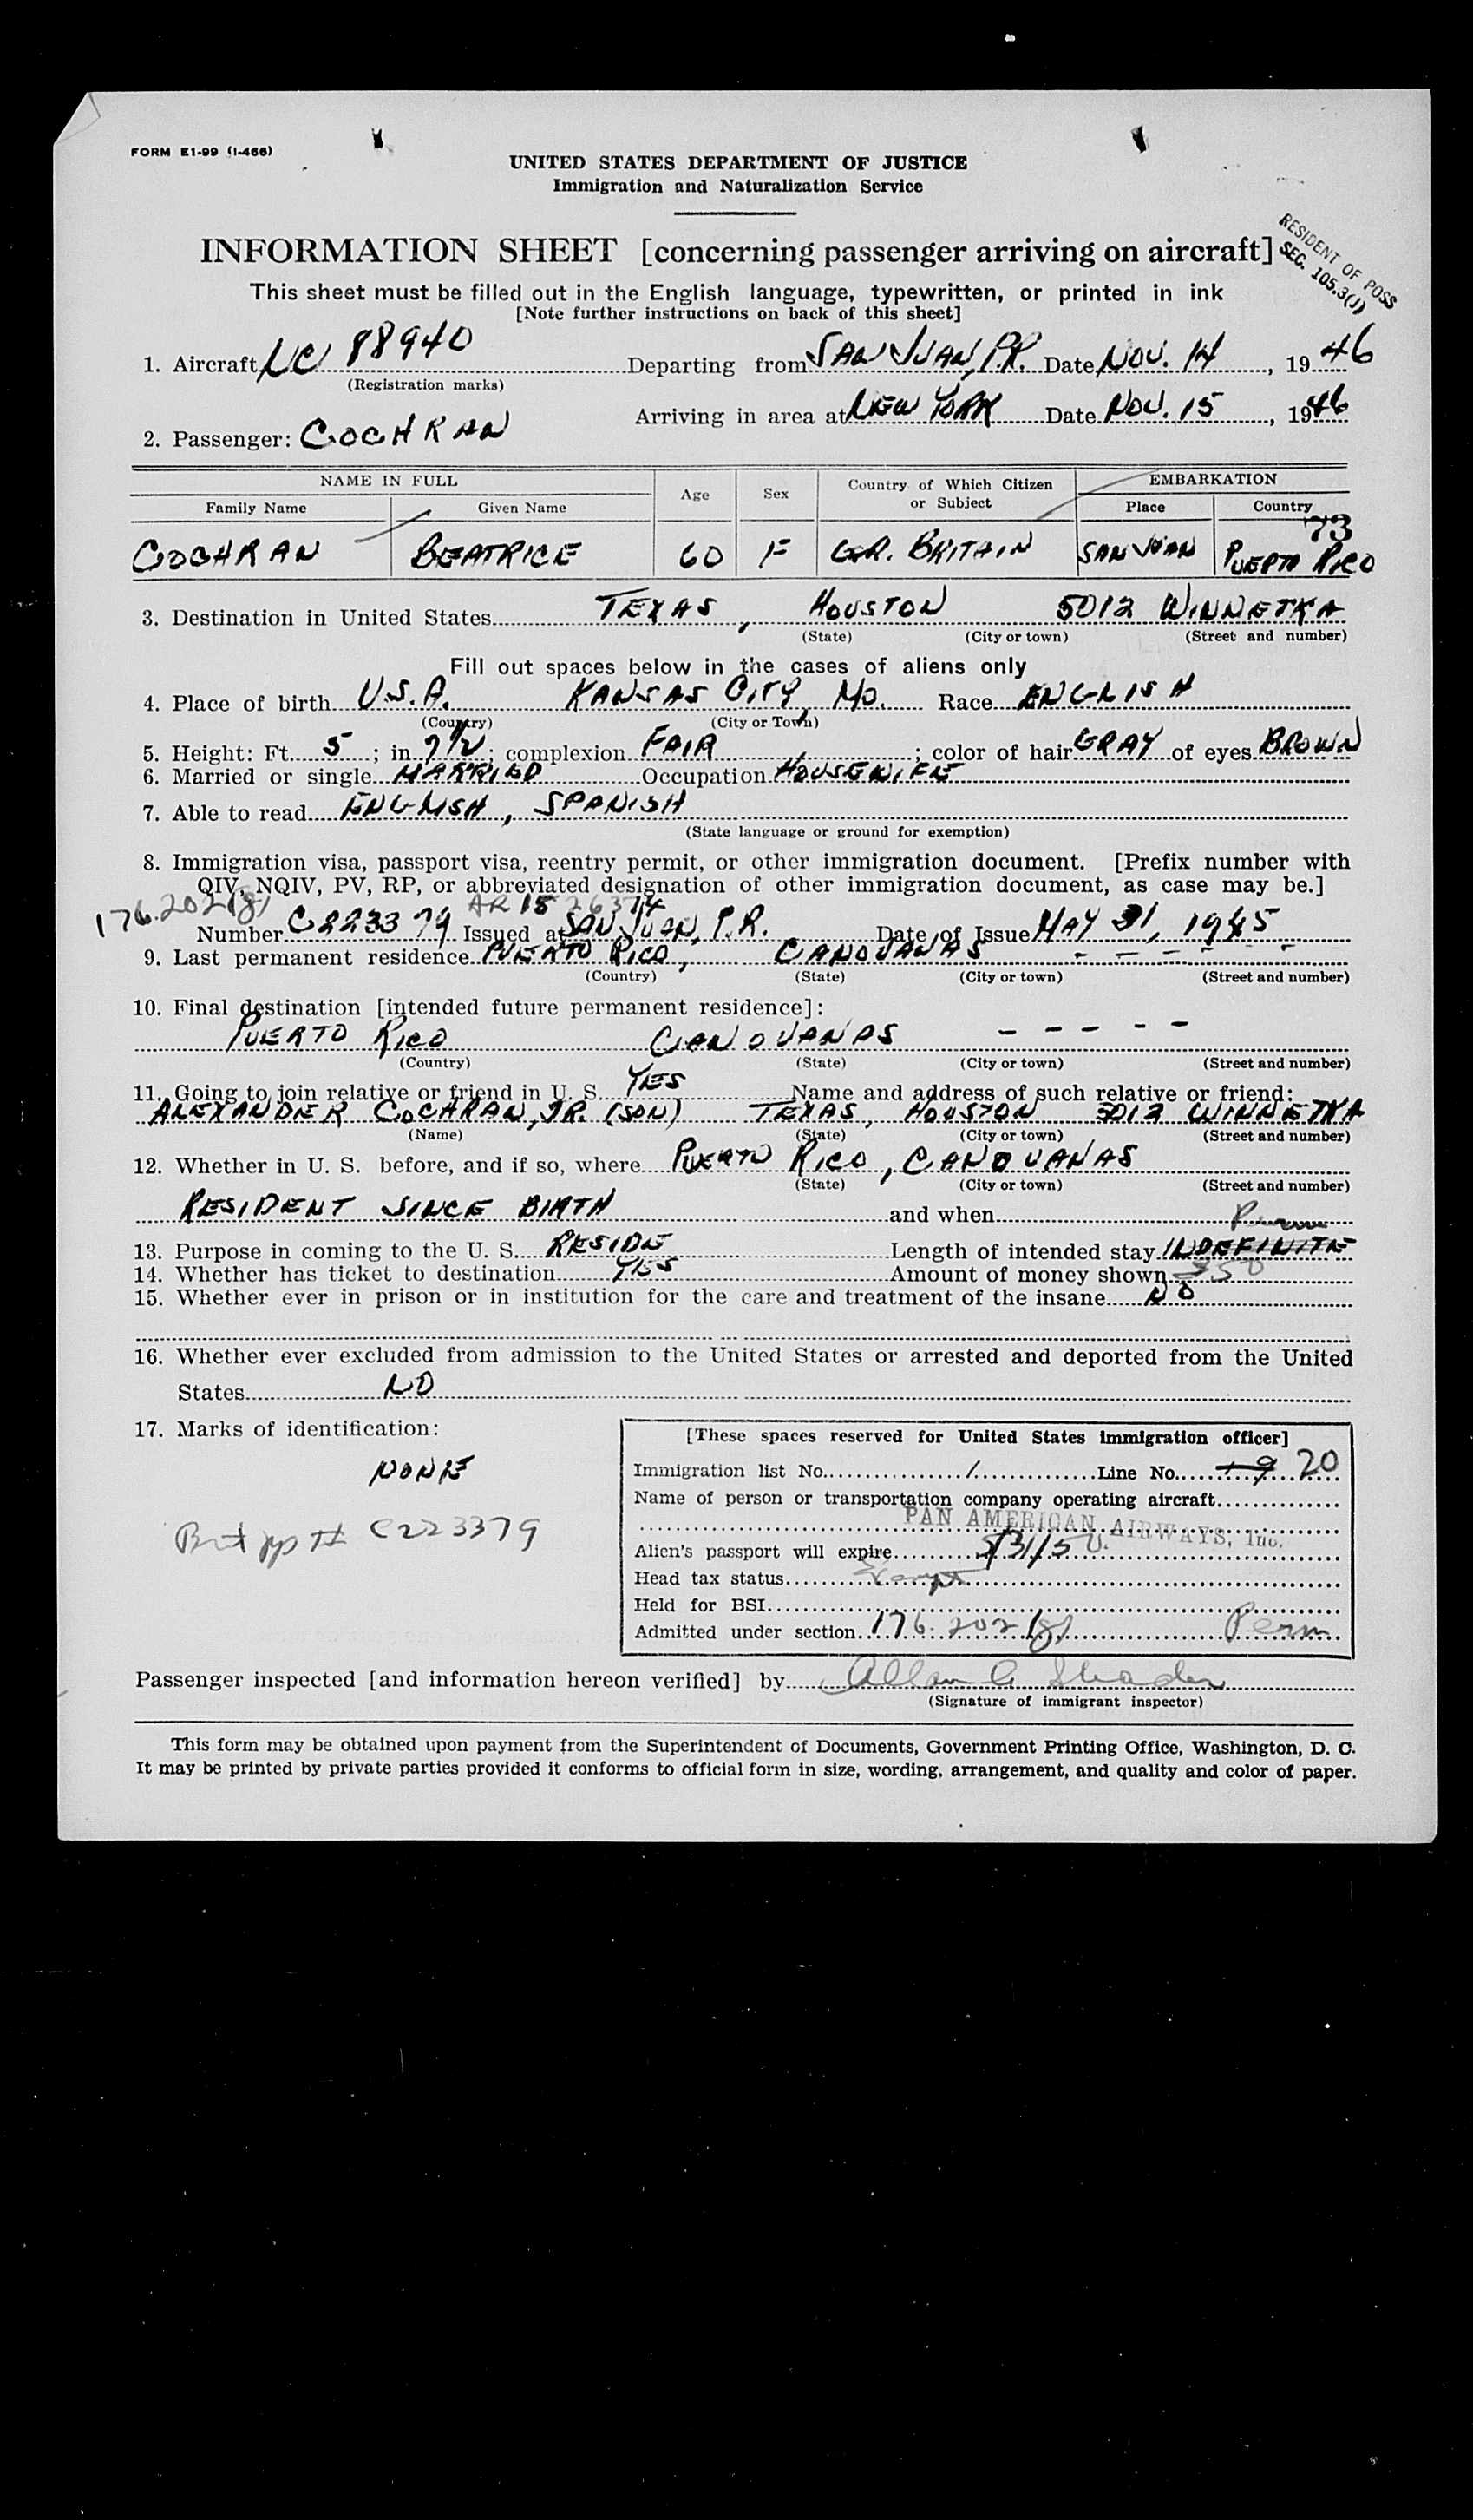 FORM E1-99 (I-466)
UNITED STATES DEPARTMENT OF JUSTICE
Immigration and Naturalization Service
INFORMATION SHEET [concerning passenger arriving on aircraft]
RESIDENT OF POSS
SEC. 105.3(J)
This sheet must be filled out in the English language, typewritten, or printed in ink
[Note further instructions on back of this sheet]
1. Aircraft NC 88940 Departing from SAN JUAN, P.R. Date NOV. 14, 1946
(Registration marks)
Arriving in area at NEW YORK Date NOV. 15, 1946
2. Passenger: COCHRAN
NAME IN FULL Age Sex Country of Which Citizen or Subject EMBARKATION
Family Name Given Name Place Country
73
COCHRAN BEATRICE 60 F GR. BRITAIN SAN JUAN PUERTO RICO
3. Destination in United States TEXAS, HOUSTON 5012 WINNETKA
(State) (City or town) (Street and number)
Fill out spaces below in the cases of aliens only
4. Place of birth U.S.A. KANSAS CITY, MO. Race ENGLISH
(Country) (City or Town)
5. Height: Ft. 5; in. 7 1/2; complexion FAIR; color of hair GRAY of eyes BROWN
6. Married or single MARRIED Occupation HOUSEWIFE
7. Able to read ENGLISH, SPANISH
(State language or ground for exemption)
8. Immigration visa, passport visa, reentry permit, or other immigration document. [Prefix number with
QIV, NQIV, PV, RP, or abbreviated designation of other immigration document, as case may be.]
176.202(g) AR 15 26374
Number C223379 Issued at SAN JUAN, P.R. Date of Issue MAY 31, 1945
9. Last permanent residence PUERTO RICO, CANOVANAS - - - - -
(Country) (State) (City or town) (Street and number)
10. Final destination [intended future permanent residece]:
PUERTO RICO CANOVANAS - - - - -
(Country) (State) (City or town) (Street and number)
11. Going to join relative or friend in U. S. YES Name and address of such relative or friend:
ALEXANDER COCHRAN, JR. (SON) TEXAS, HOUSTON 5012 WINNETKA
(Name) (State) (City or town) (Street and number)
12. Whether in U. S. before, and if so, where PUERTO RICO, CANOVANAS
(State) (City or town) (Street and number)
RESIDENT SINCE BIRTH and when
Perm
13. Purpose in coming to the U. S. RESIDE Length of intended stay INDEFINITE
14. Whether has ticket to destination YES Amount of money shown 350
15. Whether ever in prison or in institution for the care and treatment of the insane NO
16. Whether ever excluded from admission to the United States or arrested and deported from the United
States NO
17. Marks of identification:
NONE
Brit pp # C223379
[These spaces reserved for United States immigration officer]
Immigration list No. 1 Line No. 19 20
Name of person or transportation company operating aircraft
PAN AMERICAN AIRWAYS, Inc.
Alien's passport will expire 5/31/50
Head tax status Exempt
Held for BSI
Admitted under section 176.202(g) Perm
Passenger inspected [and information hereon verified] by Allan
(Signature of immigrant inspector)
This form may be obtained upon payment from the Superintendent of Documents, Government Printing Office, Washington, D. C.
It may be printed by private parties provided it conforms to official form in size, wording, arrangement, and quality and color of paper.